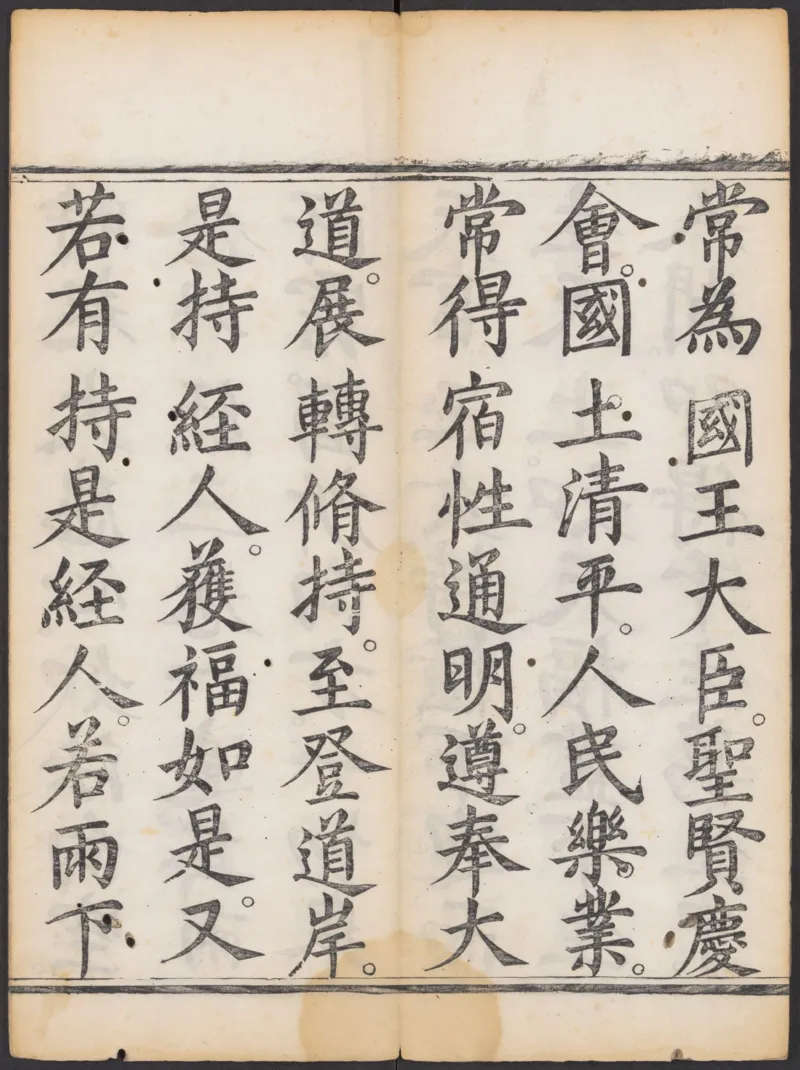 常為國王大臣。聖賢慶
會。國土清平。人民樂業。
常得宿性通明。遵奉大
道。展轉脩持。至登道岸。
是持経人。獲福如是。又
若有持是経人。若雨下